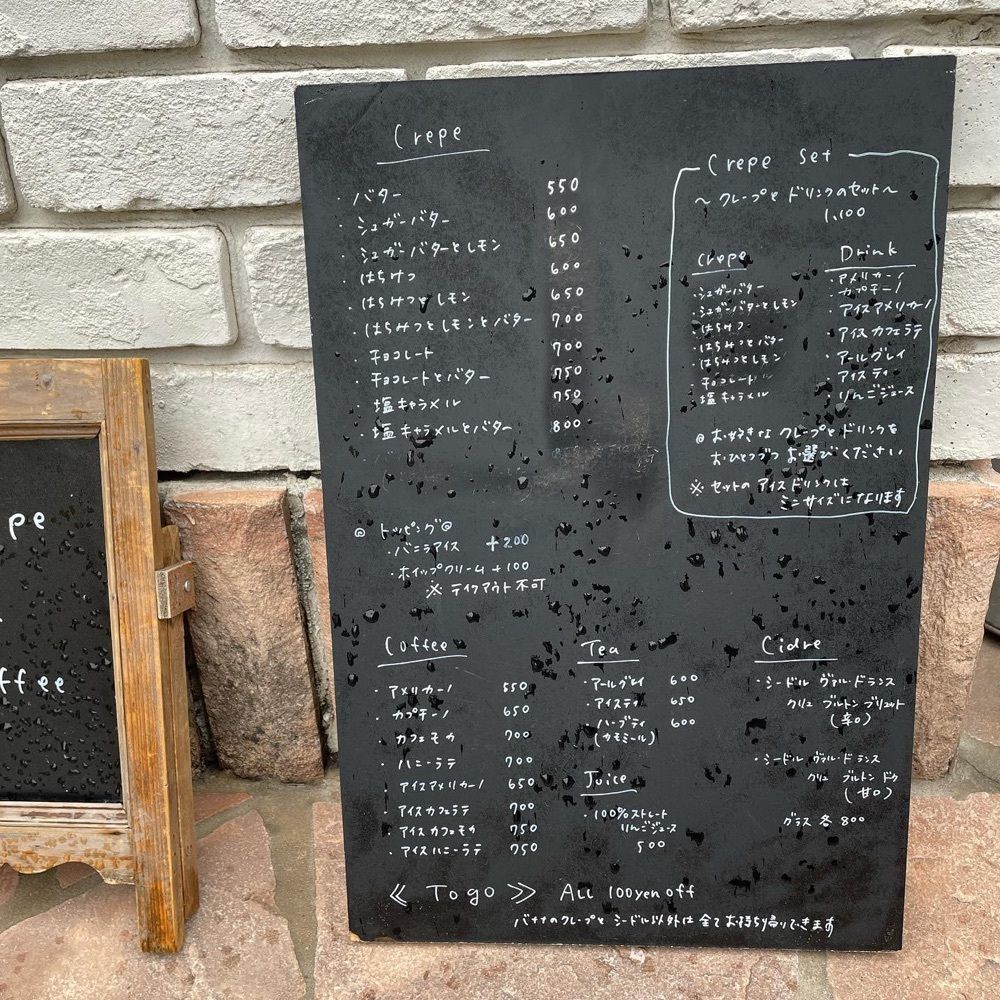 Crepe
・バター 550
・シュガーバター 600
・シュガーバターとレモン 650
・はちみつ 600
・はちみつとレモン 650
・はちみつとレモンとバター 700
・チョコレート 700
・チョコレートとバター 750
・塩キャラメル 750
・塩キャラメルとバター 800
◎トッピング◎
・バニラアイス +200
・ホイップクリーム +100
※テイクアウト不可
Crepe Set
～クレープとドリンクのセット～
1,100
Crepe
・シュガーバター
・シュガーバターとレモン
・はちみつ
・はちみつとバター
・はちみつとレモン
・チョコレート
・塩キャラメル
Drink
・アメリカーノ
・カプチーノ
・アイスアメリカーノ
・アイスカフェラテ
・アールグレイ
・アイスティ
・りんごジュース
◎お好きなクレープとドリンクを
おひとつづつお選びください
※セットのアイスドリンクは
ミニサイズになります
Coffee
・アメリカーノ 550
・カプチーノ 650
・カフェモカ 700
・ハニーラテ 700
・アイスアメリカーノ 650
・アイスカフェラテ 700
・アイスカフェモカ 750
・アイスハニーラテ 750
Tea
・アールグレイ 600
・アイスティ 650
・ハーブティ 600
(カモミール)
Juice
・100%ストレート
りんごジュース
500
Cidre
・シードル ヴァル・ド・ランス
クリュ ブルトン ブリュット
(辛口)
・シードル ヴァル・ド・ランス
クリュ ブルトン ドゥ
(甘口)
グラス 各800
≪ To go ≫ ALL 100yen off
バナナのクレープとシードル以外は全てお持ち帰りできます
pe
ffee